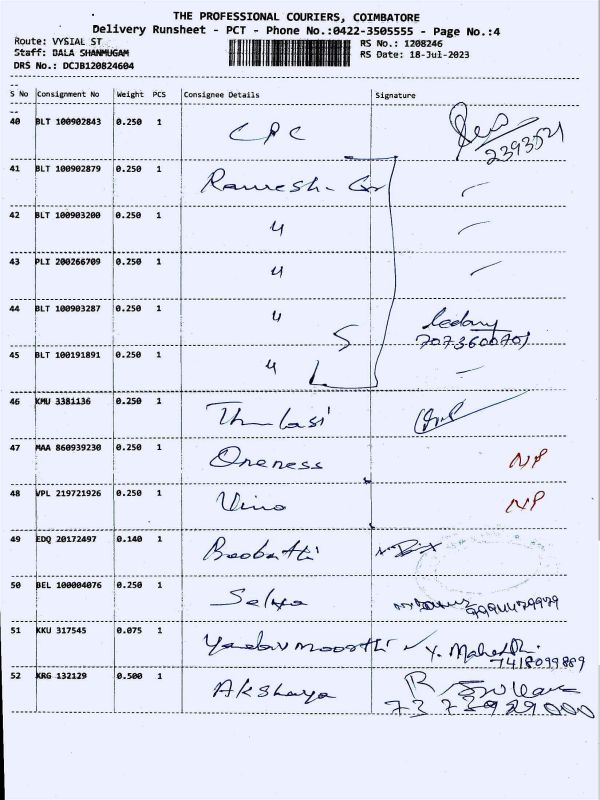 THE PROFESSIONAL COURIERS, COIMBATORE
Delivery Runsheet - PCT - Phone No.:0422-3505555 - Page No.:4
Route: VYSIAL ST
RS No.: 1208246
Staff: BALA SHANMUGAM
RS Date: 18-Jul-2023
DRS No.: DCJB120824604
S No Consignment No Weight PCS Consignee Details Signature
40 BLT 100902843 0.250 1 CPC
2393521
41 BLT 100902879 0.250 1 Ramesh-Gr
42 BLT 100903200 0.250 1 "
43 PLI 200266709 0.250 1 "
44 BLT 100903287 0.250 1 "
7073600701
5
45 BLT 100191891 0.250 1 "
46 KMU 3381136 0.250 1 Thulasi
47 MAA 860939230 0.250 1 Oneness NP
48 VPL 219721926 0.250 1 Vino NP
49 EDQ 20172497 0.140 1
50 BEL 100004076 0.250 1 Selva
51 KKU 317545 0.075 1 Yadav moorthi
7418099889
52 KRG 132129 0.500 1 Akshaya
7373929000